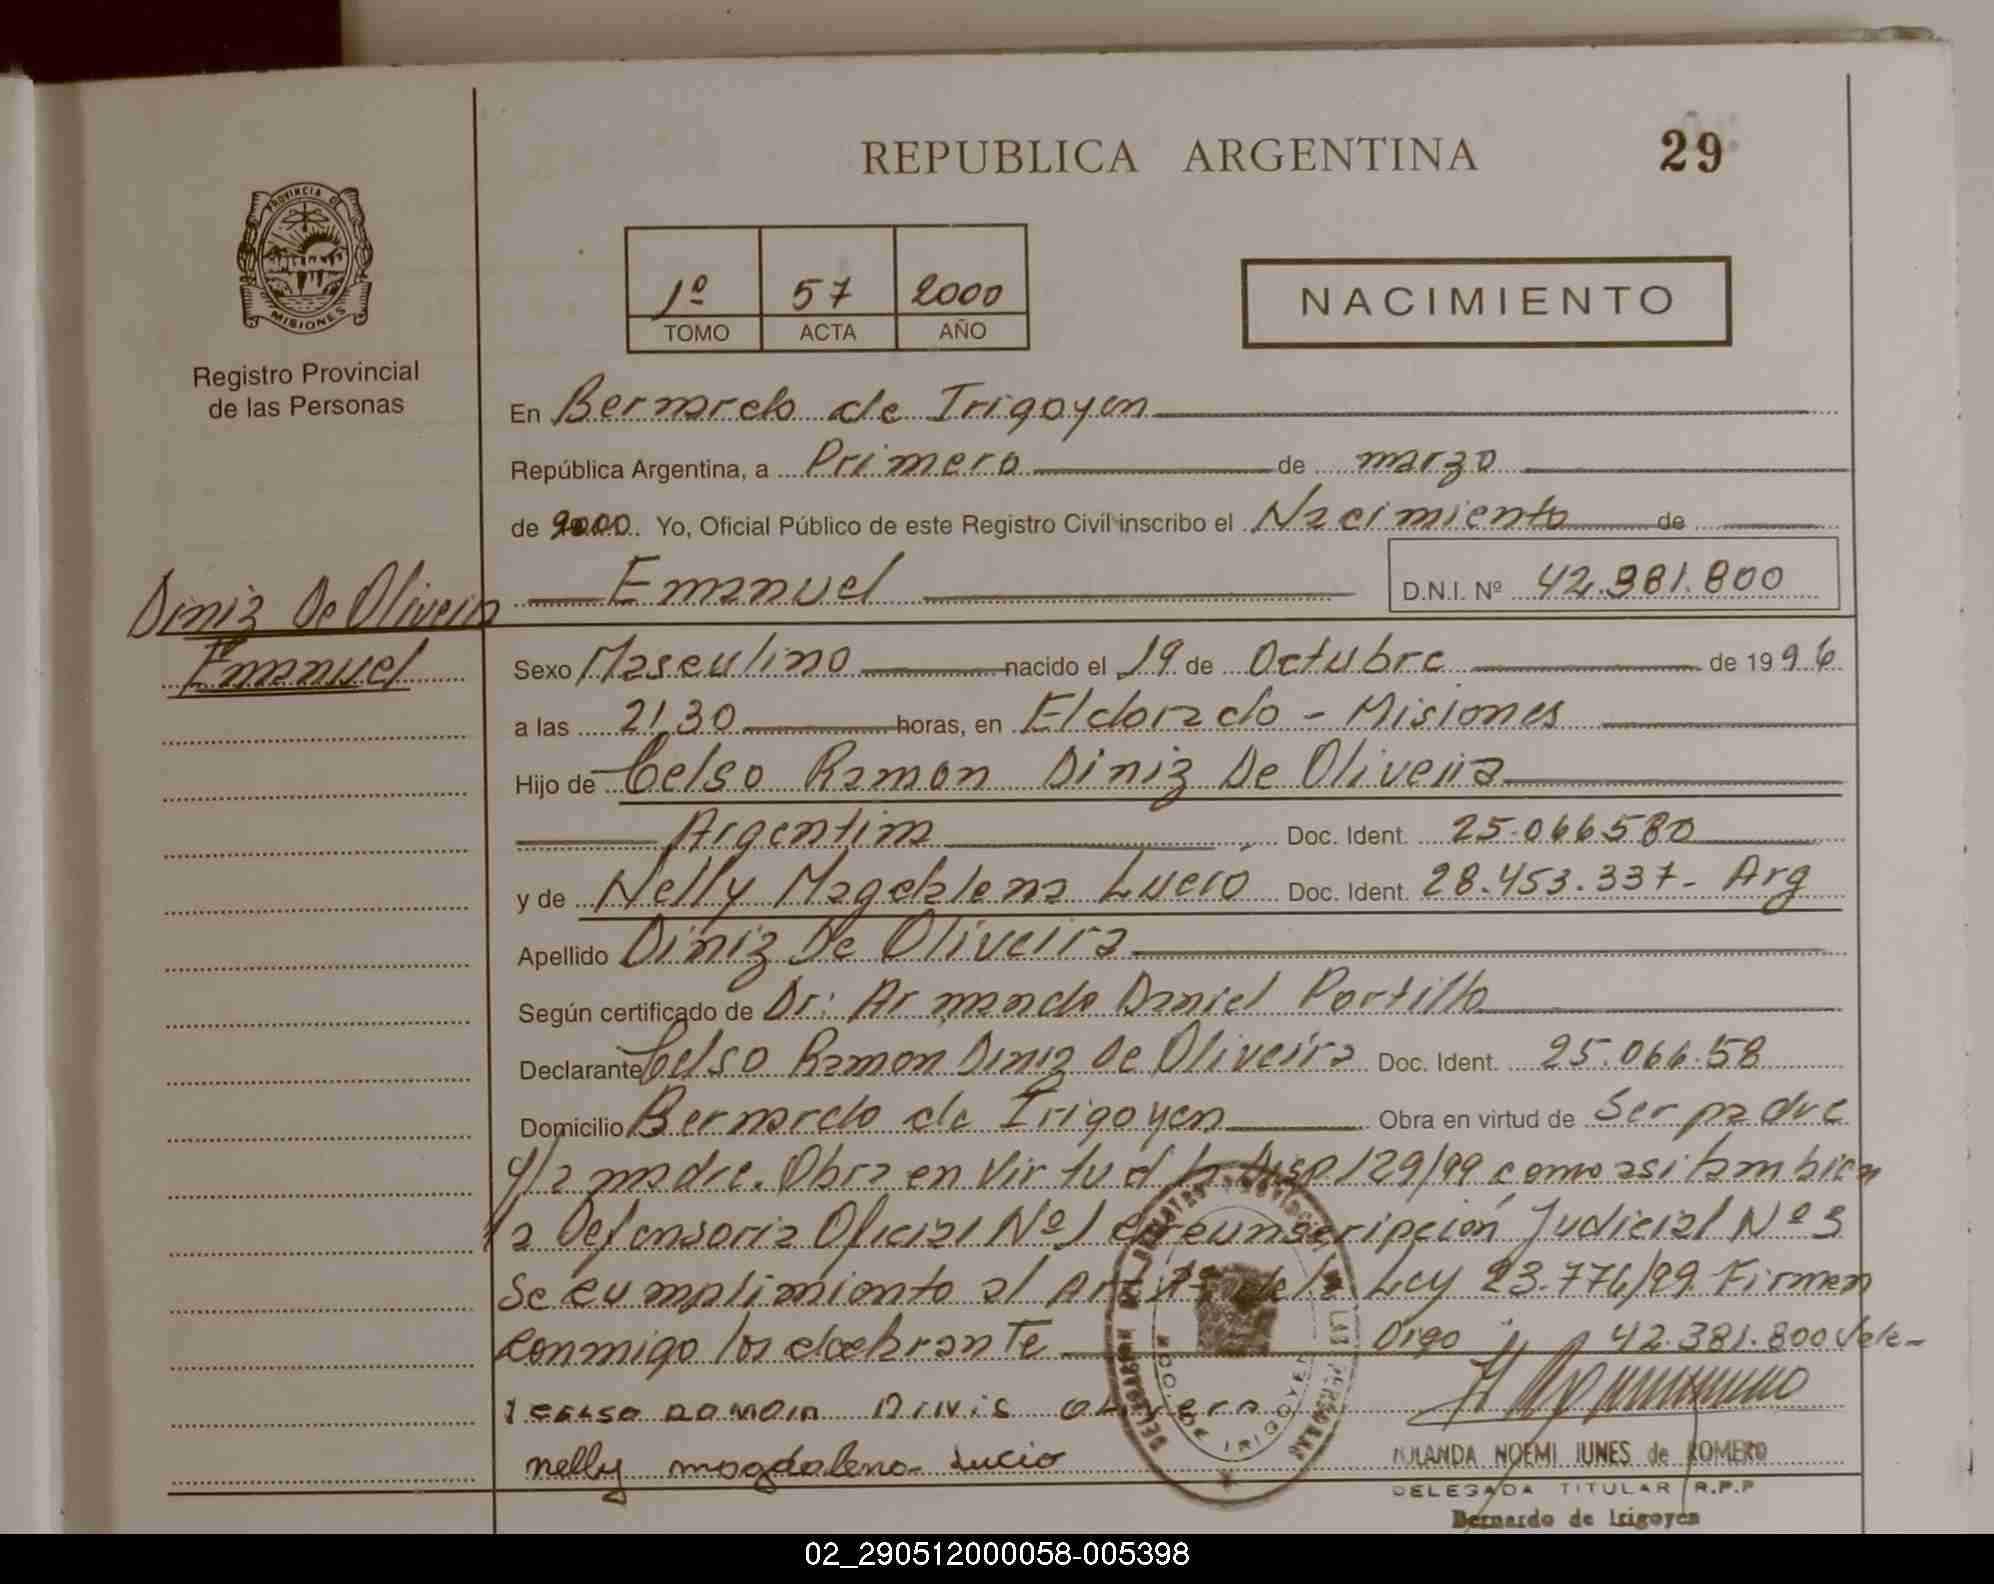 REPUBLICA ARGENTINA
29
PROVINCIA DE
MISIONES
Registro Provincial
de las Personas
1º 57 2000
TOMO ACTA AÑO
NACIMIENTO
En Bernardo de Irigoyen
República Argentina, a Primero de marzo
de 2000. Yo, Oficial Público de este Registro Civil inscribo el Nacimiento de
Emanuel D.N.I. Nº 42.381.800
Diniz De Oliveira
Emanuel
Sexo Masculino nacido el 19 de Octubre de 1996
a las 21,30 horas, en Eldorado - Misiones
Hijo de Celso Ramon Diniz De Oliveira
Argentina Doc. Ident. 25.066.580
y de Nelly Magdalena Lucio Doc. Ident. 28.453.337- Arg
Apellido Diniz De Oliveira
Según certificado de Dr: Armando Daniel Portillo
Declarante Celso Ramon Diniz De Oliveira Doc. Ident. 25.066.58
Domicilio Bernardo de Irigoyen Obra en virtud de Ser padre
y la madre. Obra en Virtud Disp 129/99 como asi tambien
la Defensoria Oficial Nº1 Circunscripción Judicial Nº3
Se cumplimiento al Art de la Ley 23.776/99. Firman
Conmigo los declarante Digo 42.381.800 Vale-
nelly magdalena Lucio
YOLANDA NOEMI JUNES de ROMERO
DELEGADA TITULAR R.P.P
Bernardo de Irigoyen
02_290512000058-005398